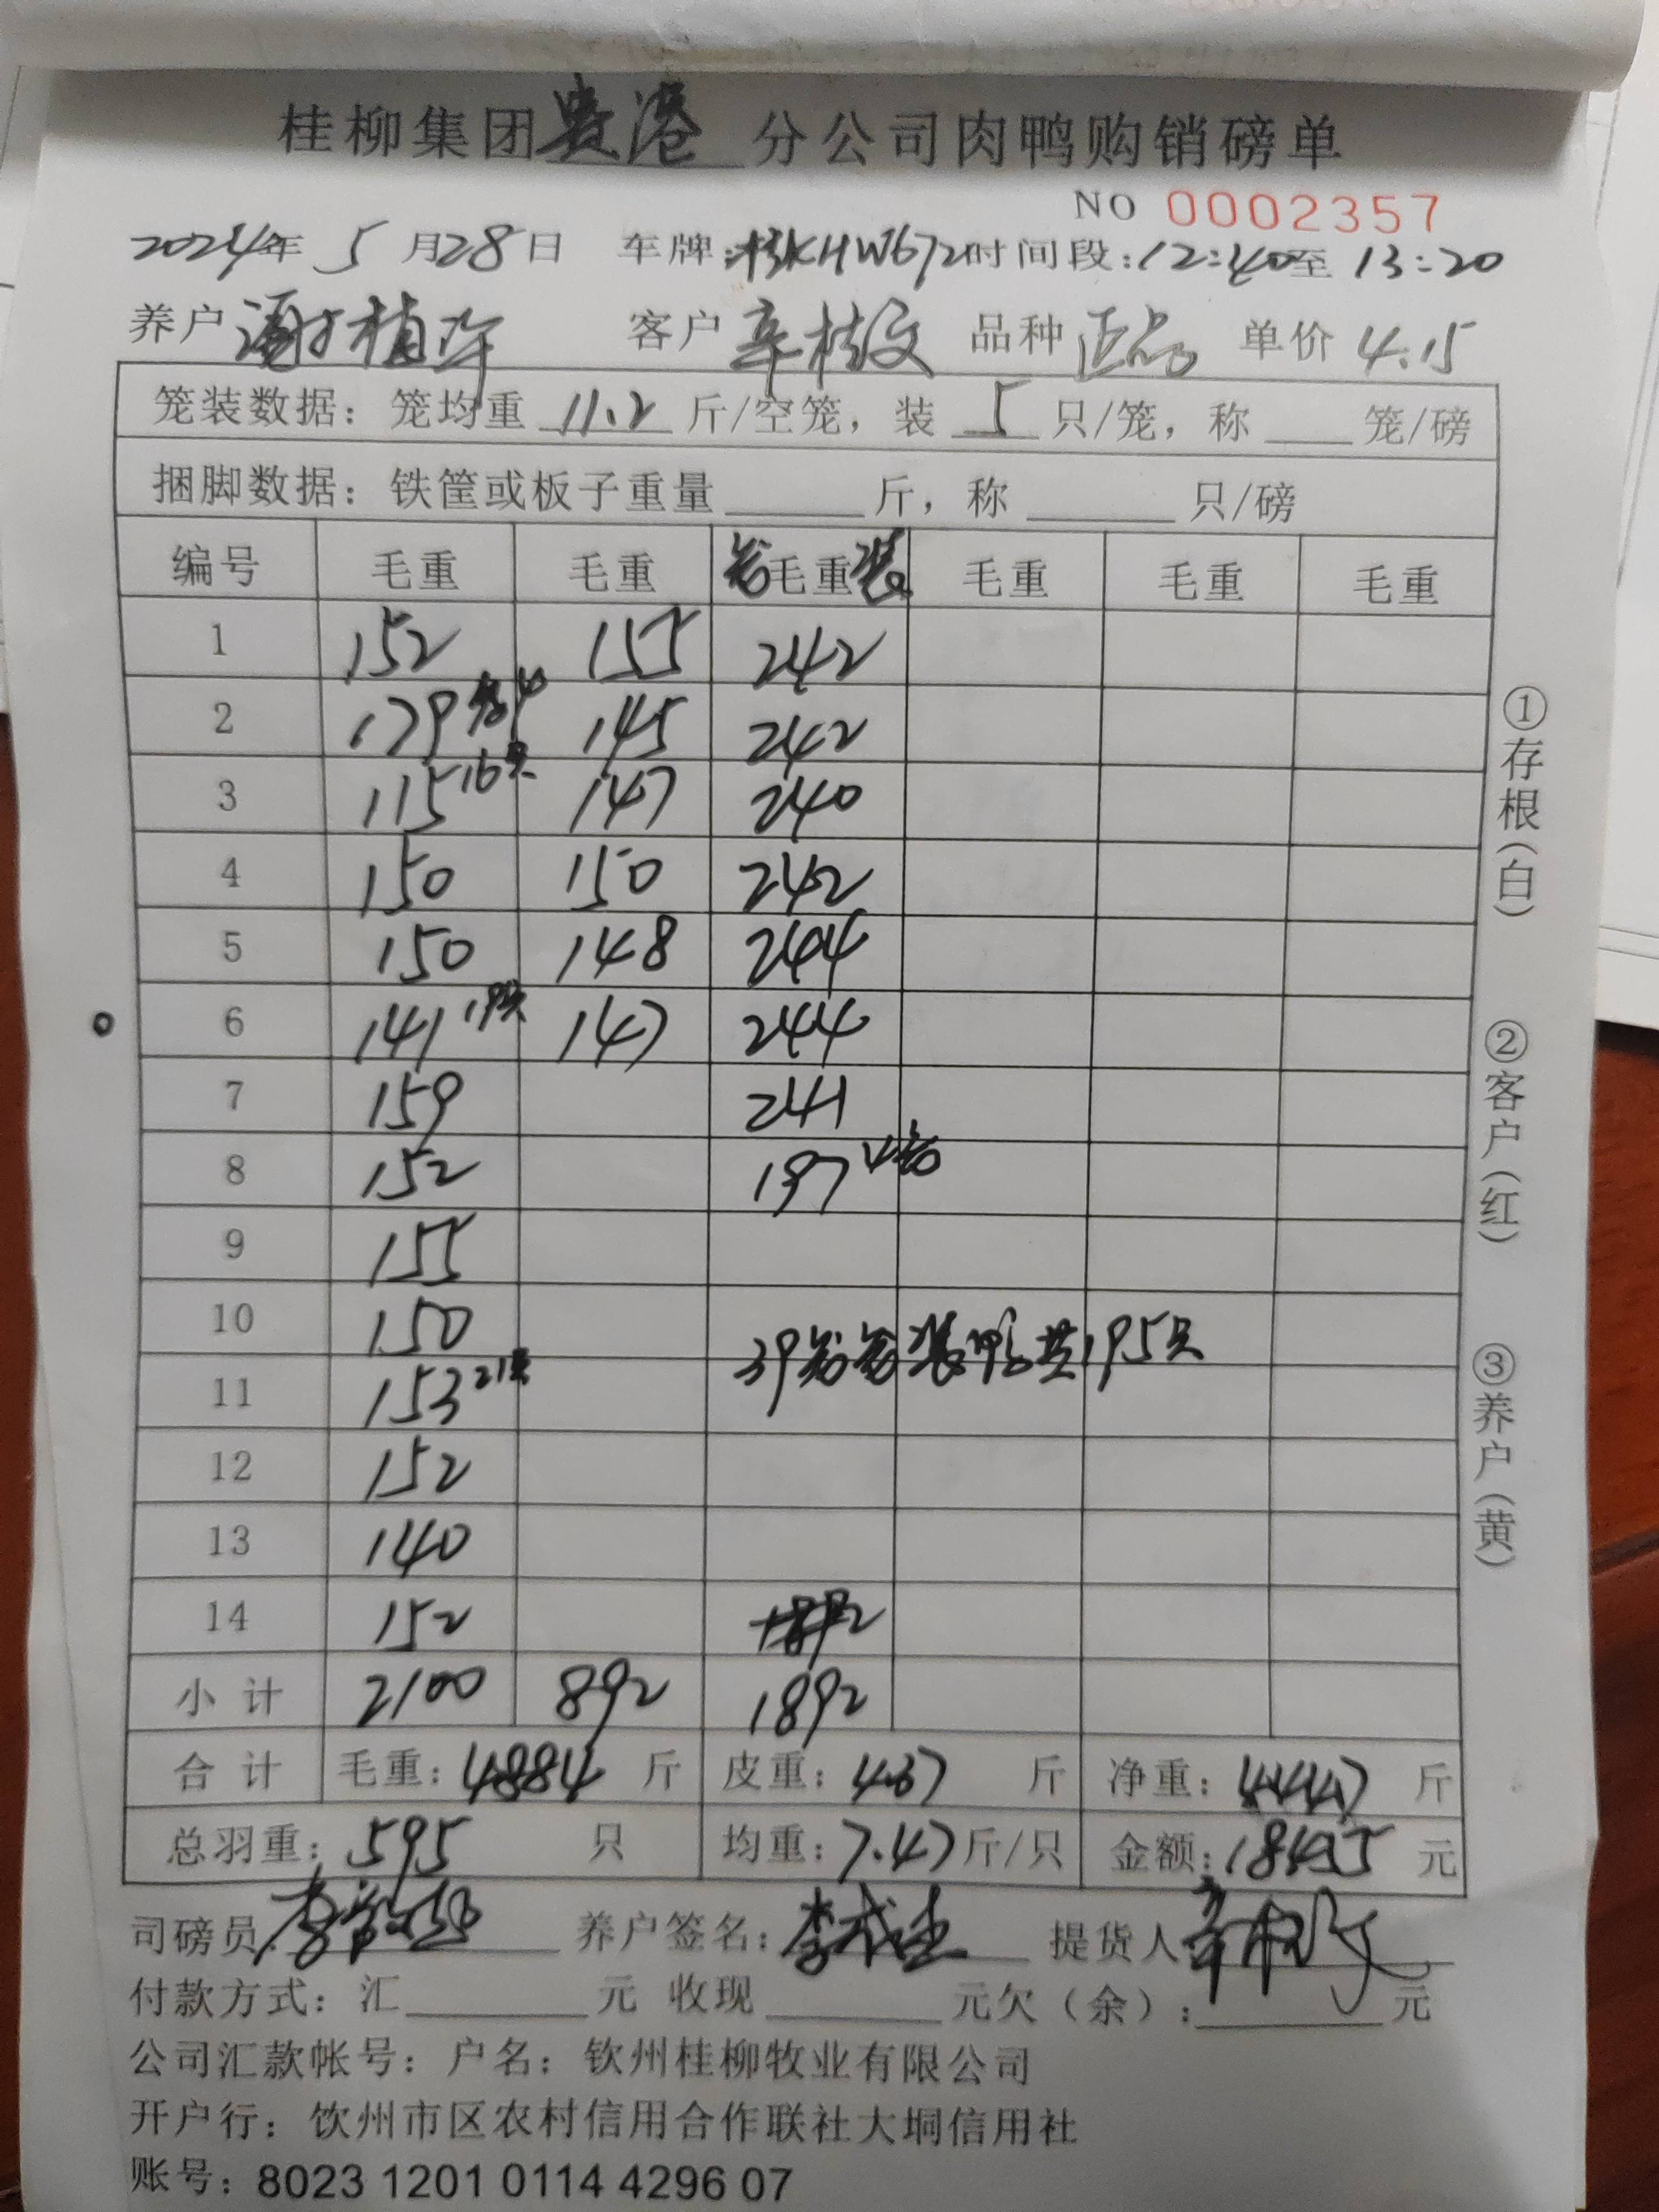 桂柳集团贵港分公司肉鸭购销磅单
NO 0002357
2024年 5 月28日 车牌:桂KHW672时间段:12:40至13:20
养户 谢植 客户 辛桂文 品种 正品 单价 4.15
笼装数据：笼均重 11.2 斤/空笼，装 5 只/笼，称 笼/磅
捆脚数据：铁筐或板子重量 斤，称 只/磅
编号 毛重 毛重 笼毛重装 毛重 毛重 毛重
1 152 155 242
2 179 145 242
3 115 16只 147 240
4 150 150 242
5 150 148 244
6 141 19只 147 244
7 159 241
8 152 197 4笼
9 155
10 150 39笼笼装鸭共195只
11 153 21只
12 152
13 140
14 152
小 计 2100 892 1892
合 计 毛重：4884 斤 皮重：437 斤 净重：4447 斤
总羽重：595 只 均重：7.47斤/只 金额：18455 元
司磅员： 养户签名：李 提货人 辛桂文
付款方式：汇 元 收现 元欠（余）： 元
公司汇款帐号：户名：钦州桂柳牧业有限公司
开户行：饮州市区农村信用合作联社大垌信用社
账号：8023 1201 0114 4296 07
①存根（白）
②客户（红）
③养户（黄）